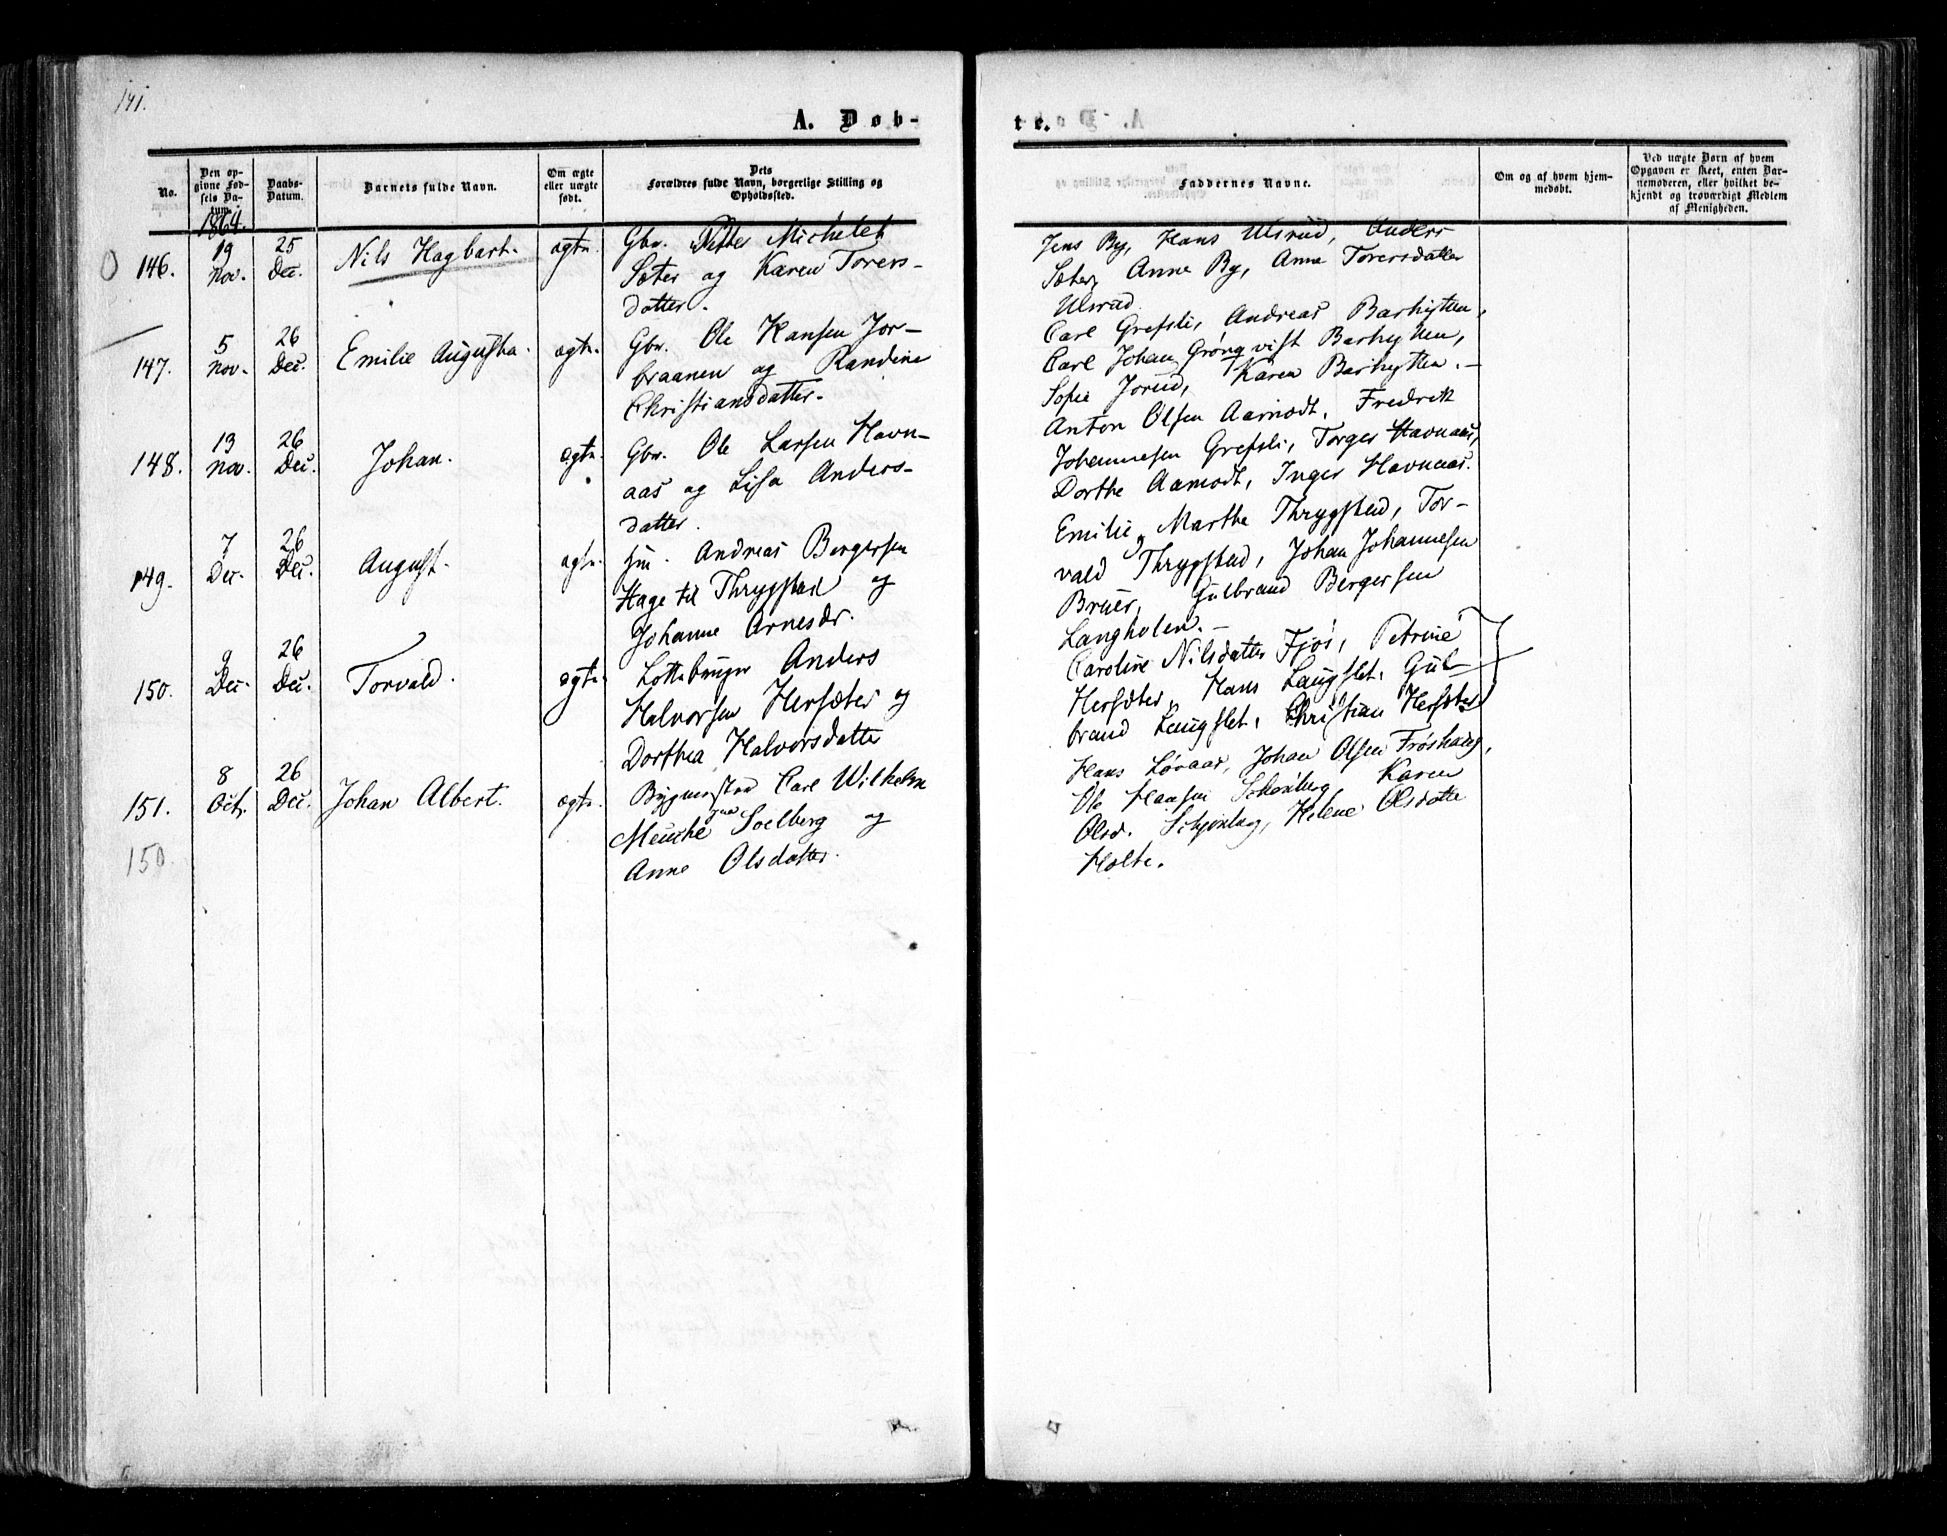 141.
A. Døb-
te.
No.
Den op-
givne Fød-
sels Da-
tum.
Daabs-
Datum.
Barnets fulde Navn.
Om ægte
eller uægte
født.
Dets
Forældres fulde Navn, borgerlige Stilling og
Opholdssted.
Faddernes Navne.
Om og af hvem hjem-
medøbt.
Ved uægte Børn af hvem
Opgaven er skeet, enten Bar-
nemoderen, eller hvilket be-
kjendt og troværdigt Medlem
af Menigheden.
1864.
146.
19
Nov.
25
Dec.
Nils Hagbart.
ægte.
Gbr. Petter Michelet
Sæter og Karen Torers-
datter.
Jens By, Hans Ulsrud, Anders
Sæter, Anne By, Anne Torersdatter
Ulsrud.
147.
5
Nov.
26
Dec.
Emilie Augusta.
ægte.
Gbr. Ole Hansen Jor-
braanen og Randine
Christiansdatter.
Carl Grefsli, Andreas Barhytten,
Carl Johan Grönqvist Barhytten,
Sofie Jorud, Karen Barhytten.-
148.
13
Nov.
26
Dec.
Johan.
ægte.
Gbr. Ole Larsen Havn-
aas og Lisa Anders-
datter.
Anton Olsen Aamodt, Fredrik
Johannesen Grefsli, Torger Havnaas,
Dorthe Aamodt, Inger Havnaas.
149.
7
Dec.
26
Dec.
August.
ægte.
Andreas Bergersen
Hage til Thrygstad og
Johanne Arnesdr.
Emilie og Marthe Thrygstad, Tor-
vald Thrygstad, Johan Johannesen
Bruer, Gulbrand Bergersen
Langholen.-
150.
9
Dec.
26
Dec.
Torvald.
ægte.
Anders
Halvorsen Hersæter og
Dorthea Halvorsdatter
Caroline Nilsdatter Fjøs, Petrine
Hersæter, Hans Langslet, Gul-
brand Langslet, Christian Hersæter
151.
8
Octr.
26
Dec.
Johan Albert.
ægte.
Carl Wilhelm
Soelberg og
Anne Olsdatter.
Hans Løvaas, Johan Olsen Frøshaug,
Ole Hansen Schønberg, Karen
Olsd. Helene Olsdatter
Holte.
150.